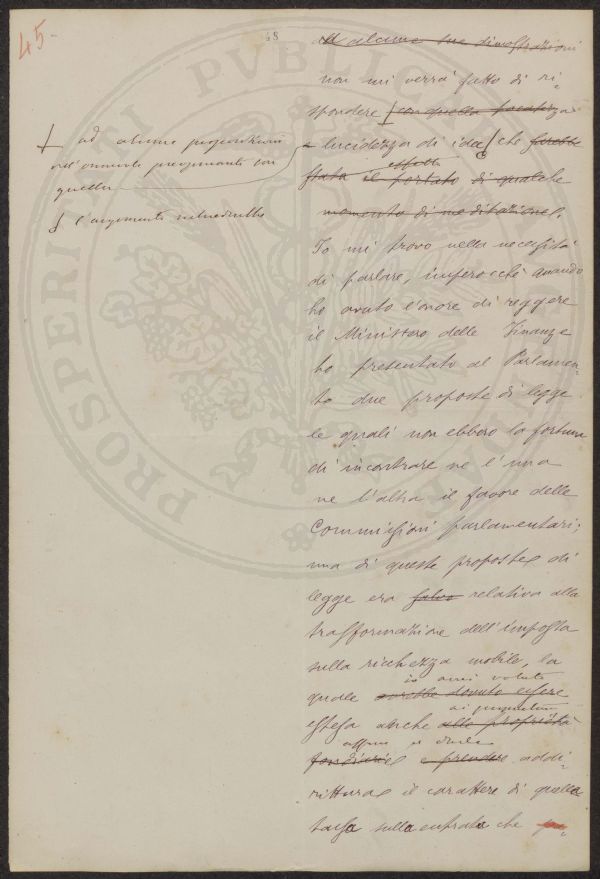 45.
48
ad alcune proposizioni
dell'onorevole preopinante con
quella
l'argomento
ad alcune sue dimostrazioni
non mi verrà fatto di ri-
spondere con quella pacatezza
e lucidezza di idee che sarebbe
effetto
stata il portato di qualche
momento di meditazione.
Io mi trovo nella necessità
di parlare, imperocchè quando
ho avuto l'onore di reggere
il Ministero delle Finanze
ho presentato al Parlamen-
to due proposte di legge
le quali non ebbero la fortuna
di incontrare nè l'una
nè l'altra il favore delle
Commissioni parlamentari;
una di queste proposte di
legge era relativa alla
trasformazione dell'imposta
sulla ricchezza mobile, la
io avrei voluto
quale avrebbe dovuto essere
estesa anche alla proprietà
fondiaria e prendere addi-
rittura il carattere di quella
tassa sulla entrata che
PROSPERITATI PVBLICAE